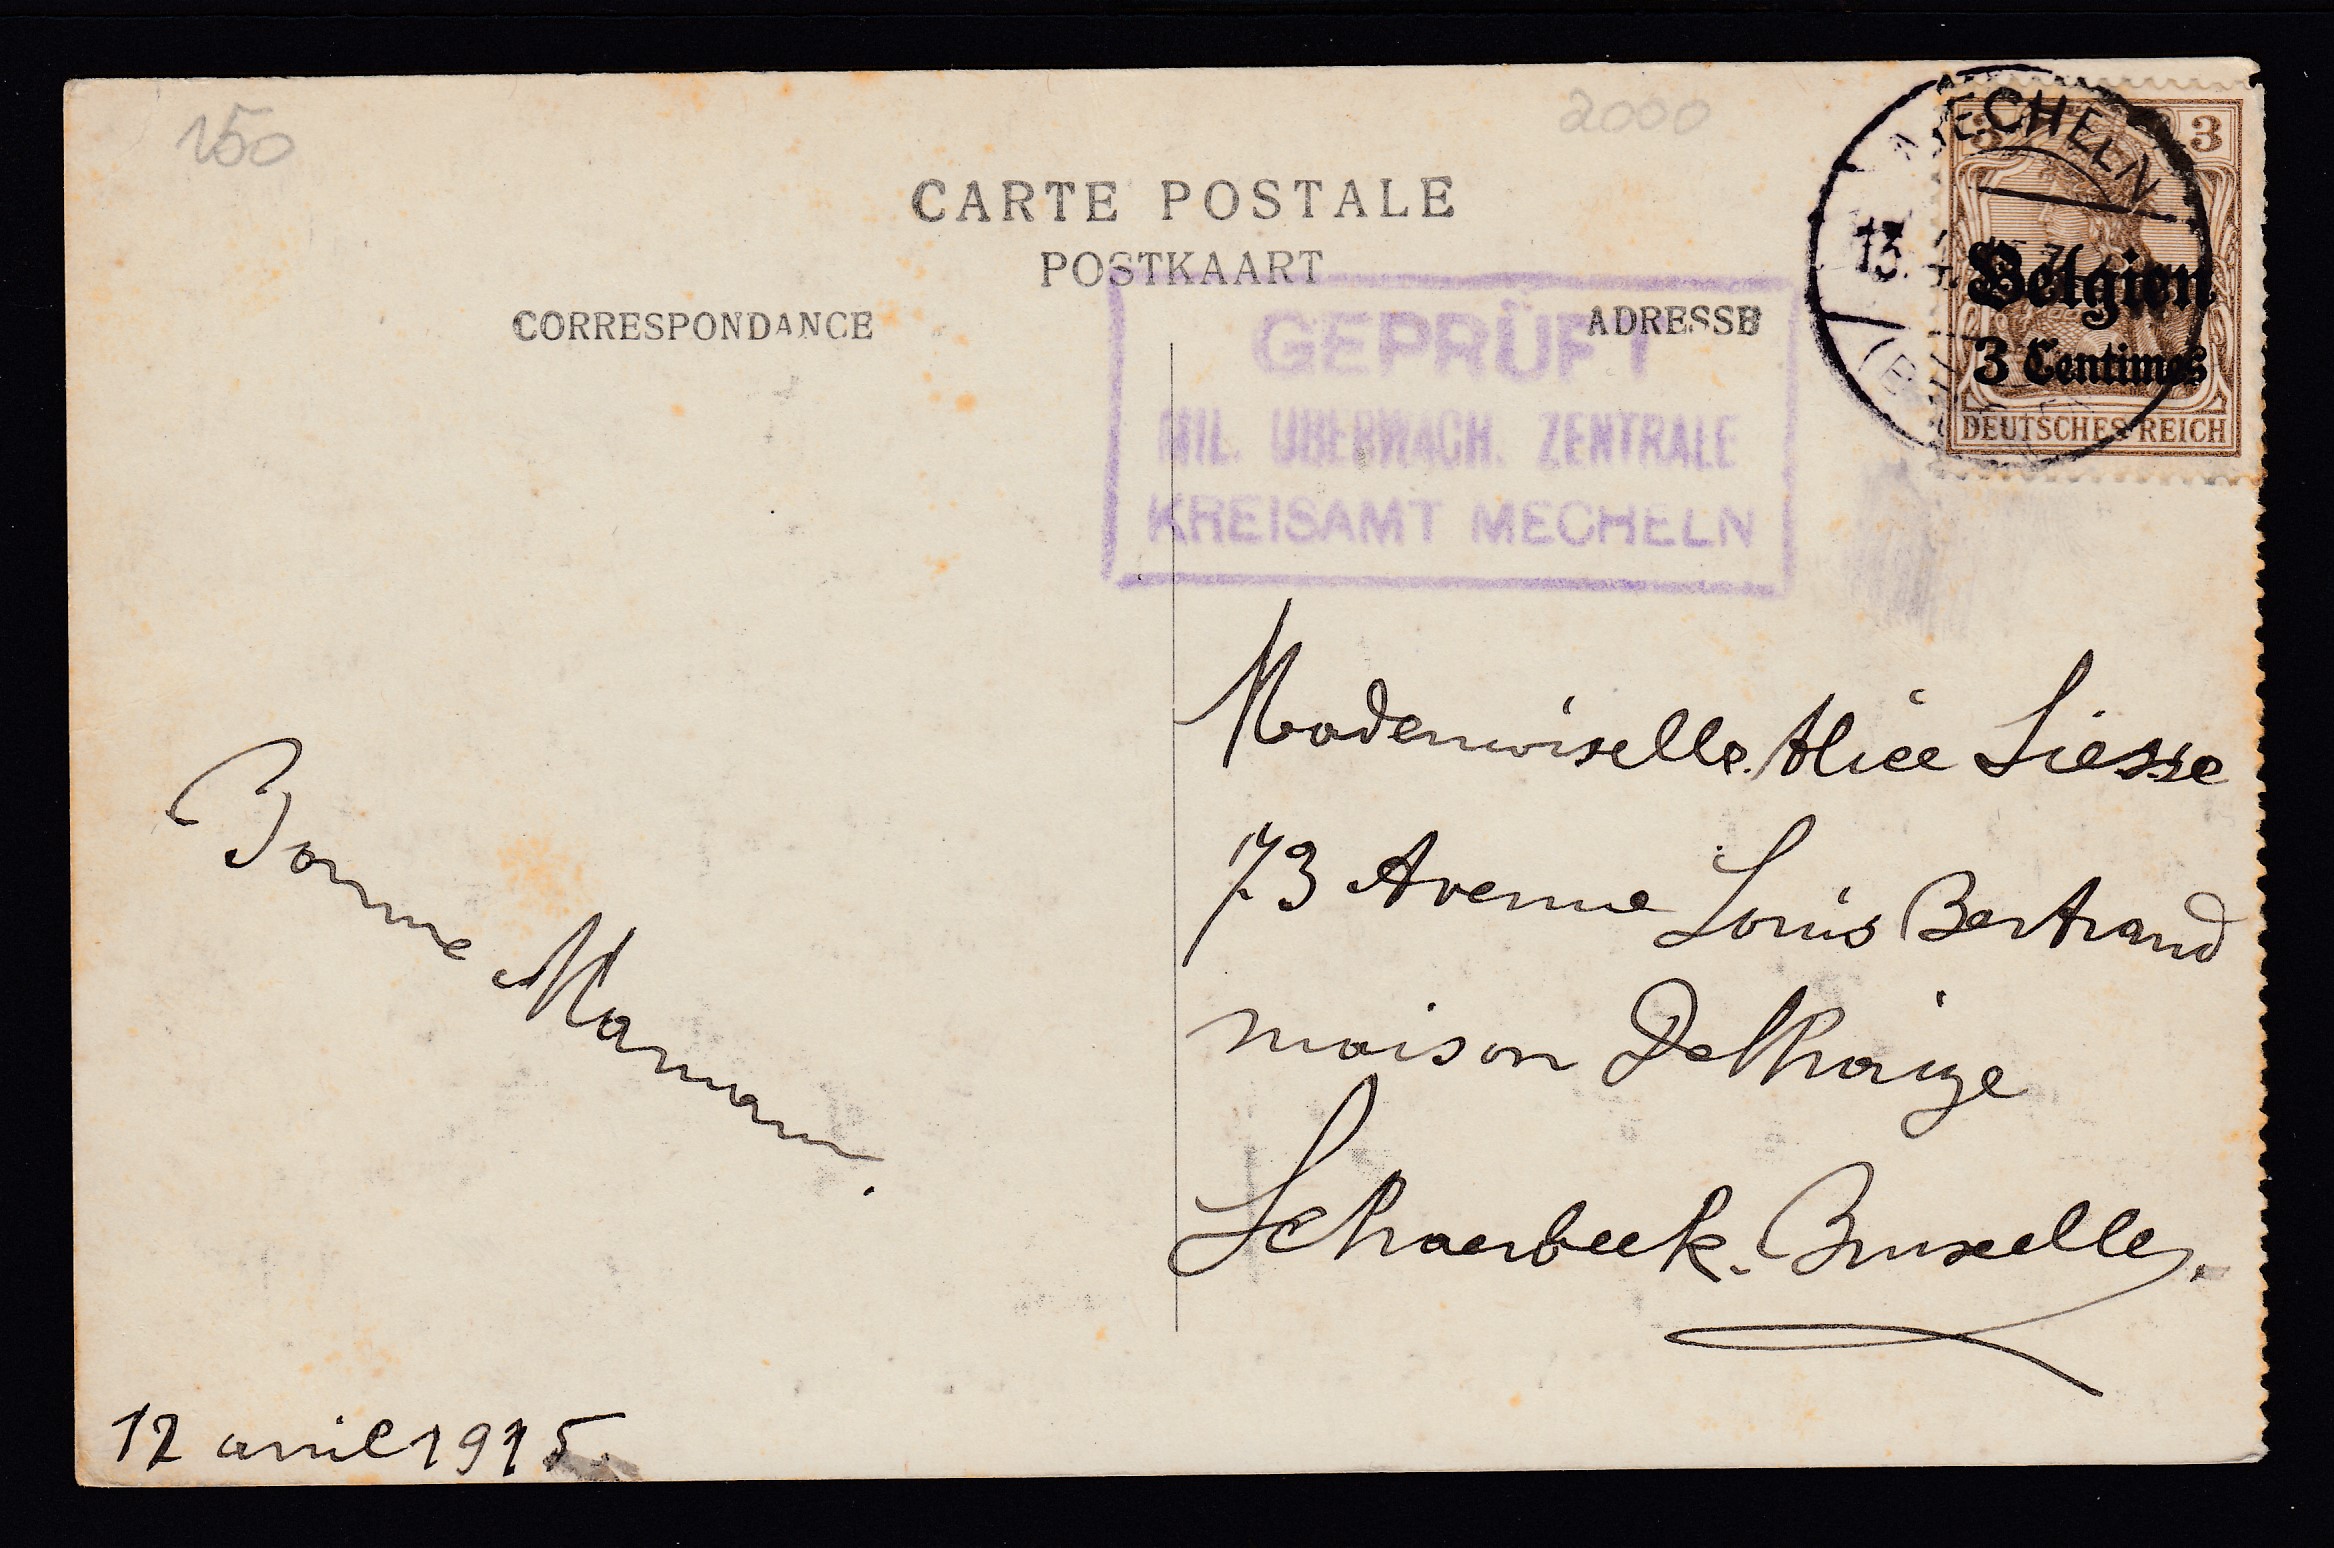 150
2000
CARTE POSTALE
POSTKAART
CORRESPONDANCE
ADRESSE
MECHELN
13. 4.
3
3
Belgien
3 Centimes
DEUTSCHES REICH
GEPRÜFT
MIL. UBERWACH. ZENTRALE
KREISAMT MECHELN
Mademoiselle Alice Liesse
73 Avenue Louis Bertrand
maison Delhaize
Schaerbeek. Bruxelles.
Bonne Maman.
12 avril 1915.